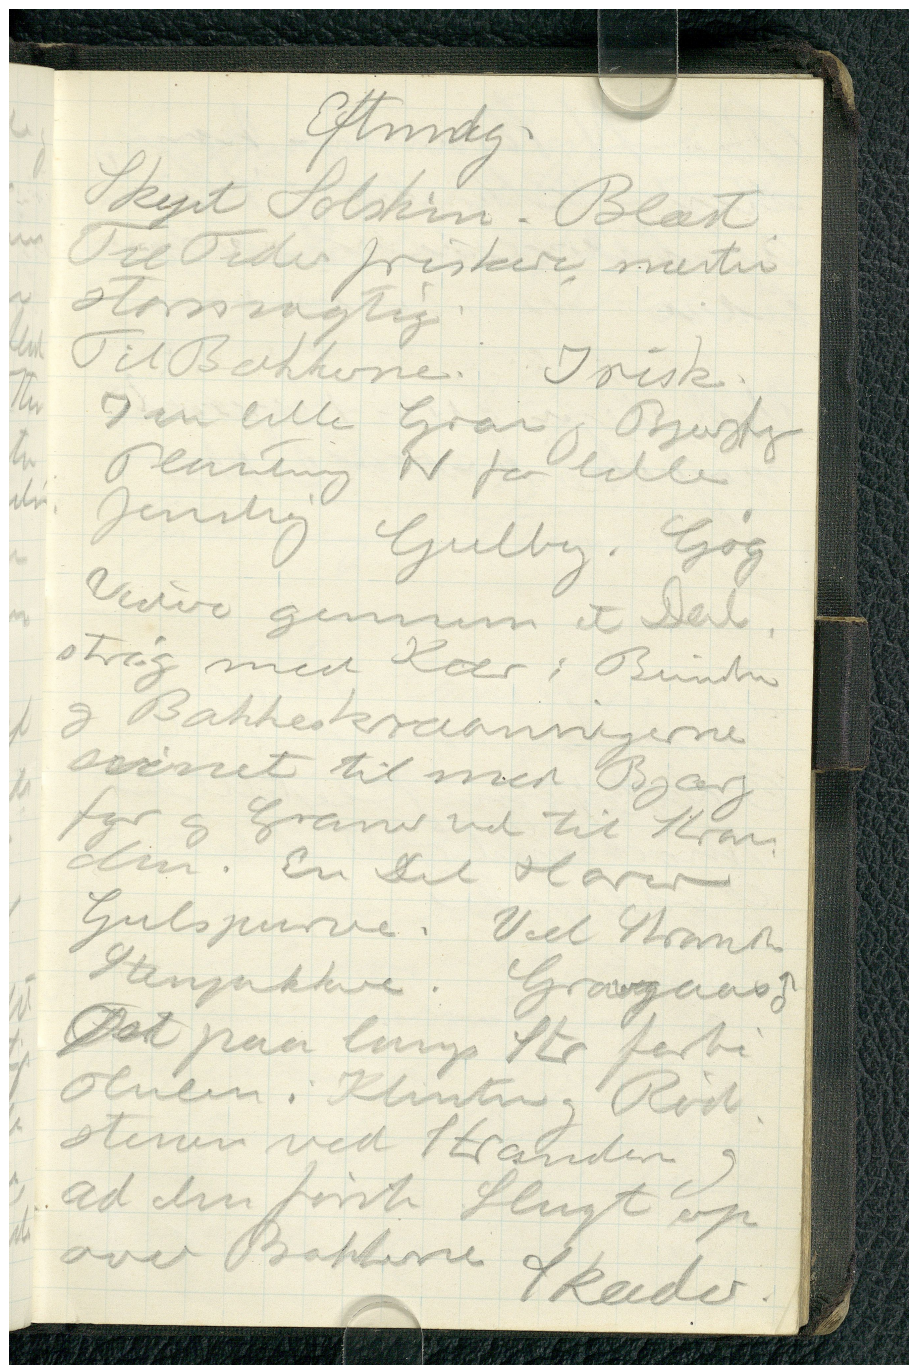 Eftmdg.
Skyet Solskin. Blæst
Til Tider friskere, næsten
stormagtig.
Til Bakkerne. Irisk.
I en lille Gran og Bjergfyr
Plantning N for lille
Gulby. Gøg
Videre gennem et Dal-
strøg med Kær i Bunden
og Bakkeskraaningerne
til med Bjærg
fyr og Graner ud til Stran
den. En Del Harer
Gulspurve. Ved Stranden
Stenpikkere. Gravgaas
Det paa langs Str forbi
i Klinten og Rød
stenen ved Stranden og
ad den første Slugt op
over Bakkerne Skader.